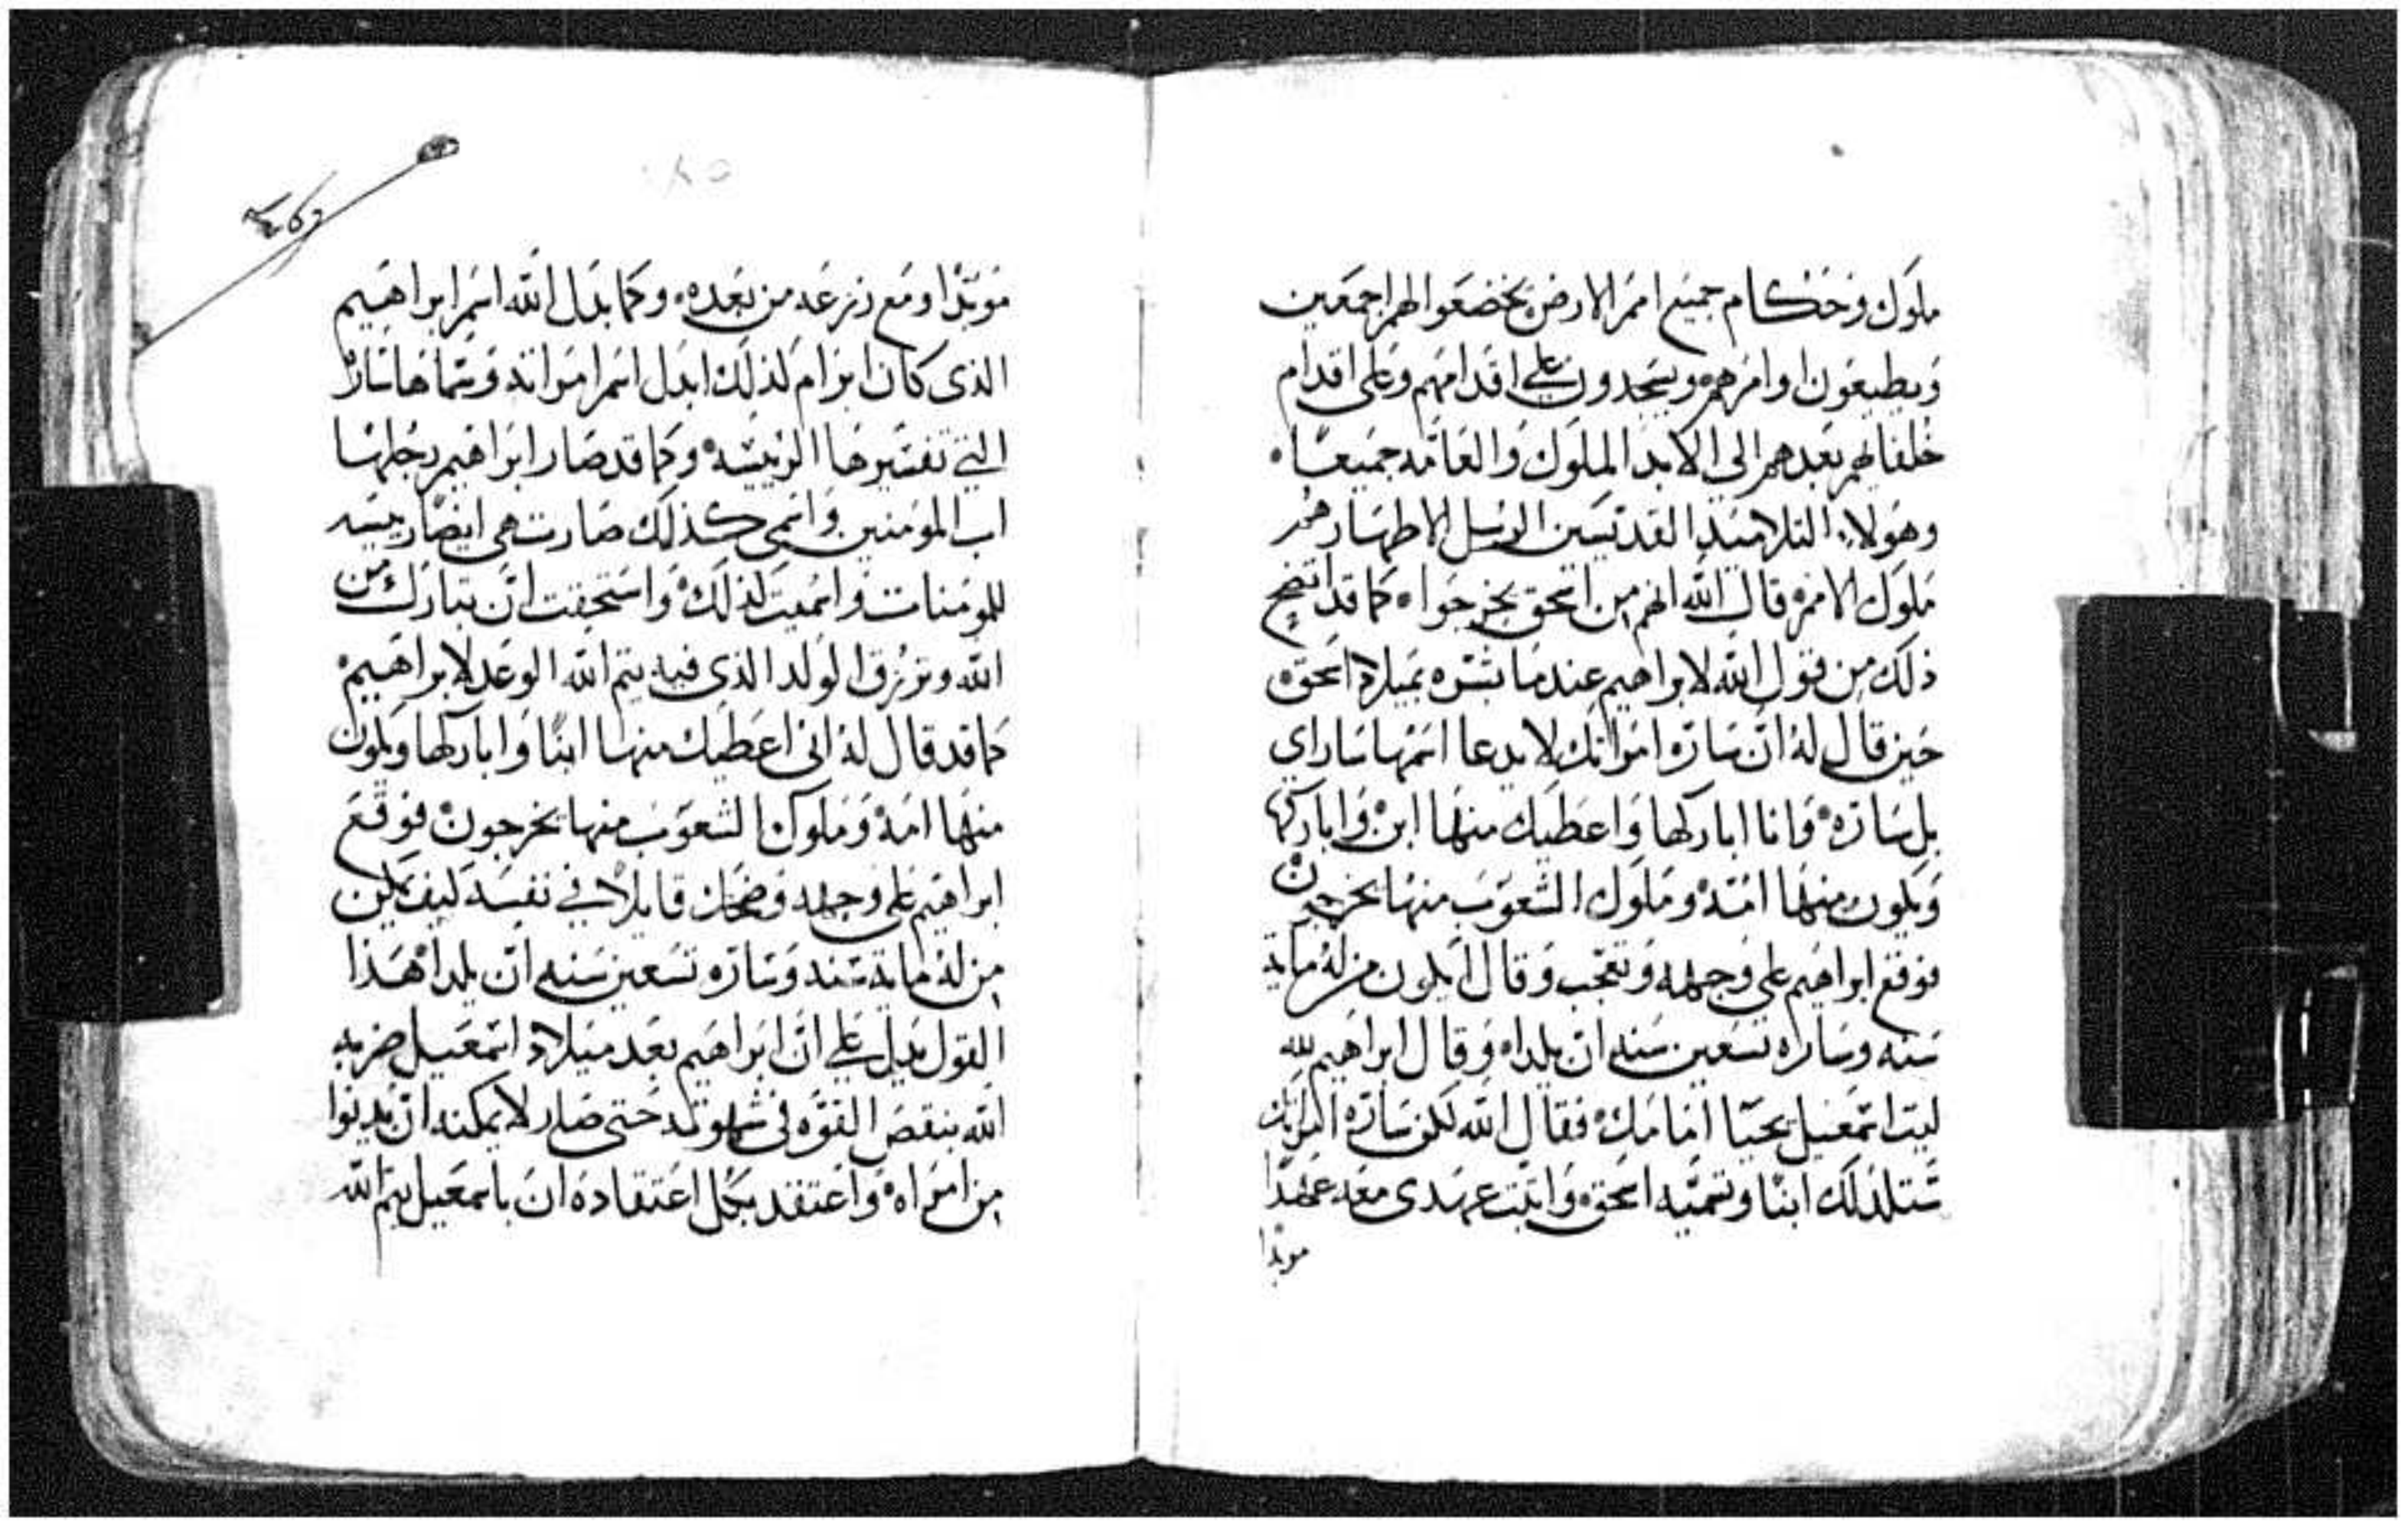 ملوك وحكام جميع امم الارض يخضعوا لهم اجمعين
ويطيعون اوامرهم ويسجدون على اقدامهم وعلى اقدام
خلفايهم بعدهم الى الابد الملوك والعامه جميعا
وهولاء التلاميد القديسين الرسل الاطهار هم
ملوك الامم قال الله انهم من اسحق يخرجوا كما قد اتضح
ذلك من قول الله لابراهيم عندما بشره بميلاد اسحق
حين قال له ان ساره امراتك لا يدعا اسمها ساراي
بل ساره وانا اباركها واعطيك منها ابن واباركها
ويكون منها امه وملوك الشعوب منها يخرجون
فوقع ابراهيم على وجهه وتعجب وقال ايكون من له ماية
سنه وساراه تسعين سنه ان يلداه وقال ابراهيم لله
ليت اسمعيل يحيا امامك فقال الله لكن ساره امراتك
ستلد لك ابنا وتسميه اسحق واثبت عهدى معه عهدا
موبدا
موبدا ومع زرعه من بعده وكما بدل الله اسم ابراهيم
الذى كان ابرام لذلك ابدل اسم امراته وسماها ساره
التي تفسيرها الرييسه وكما قد صار ابراهيم
اب المومنين واسمى كذلك صارت هى ايضا رييسه
للمومنات واسميت لذلك واستحقت ان تبارك من
الله وترزق الولد الذى فيه يتم الله الوعد لابراهيم
كما قد قال له انى اعطيك منها ابنا واباركها ويكون
منها امه وملوك الشعوب منها يخرجون فوقع
ابراهيم على وجهه وضحك قايلا في نفسه كيف يمكن
من له ماية سنه وساره تسعين سنه ان يلدا هذا
القول يدل على ان ابراهيم بعد ميلاد اسمعيل ضربه
الله بنقص القوه فى شهوته حتى صار لا يمكنه ان يدنوا
من امراه واعتقد بكل اعتقاده ان باسمعيل يتم الله